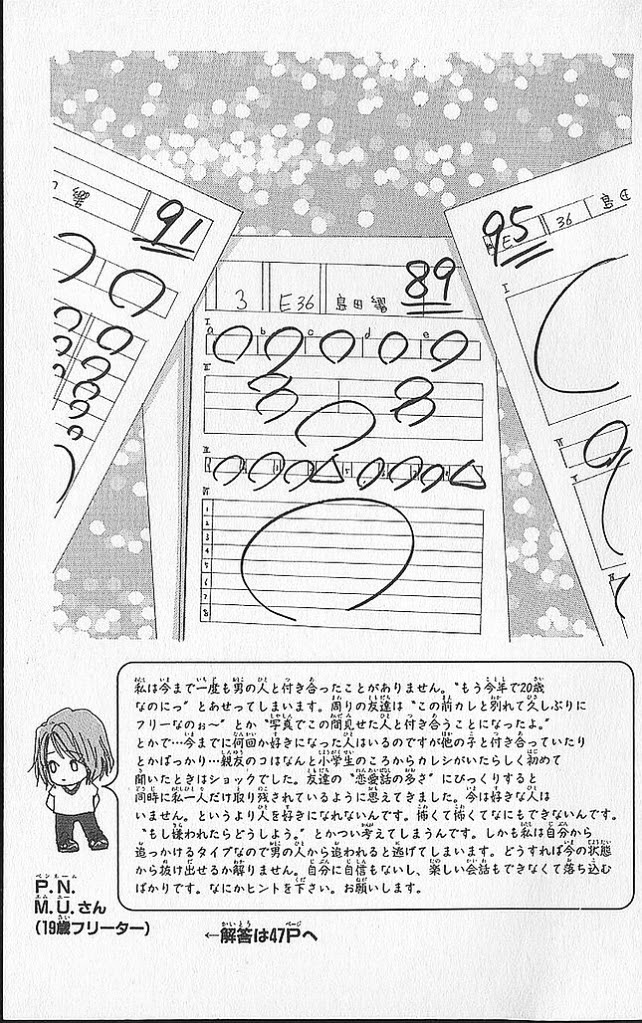 91
95
E
36
島田
3
E36
島田
89
I
a
b
c
d
e
II
III
IV
1
2
3
4
5
6
7
8
私は今まで一度も男の人と付き合ったことがありません。“もう今年で20歳
なのにっ”とあせってしまいます。周りの友達は“この前カレと別れて久しぶりに
フリーなのぉ〜”とか“写真でこの間見せた人と付き合うことになったよ。”
とかで…今までに何回か好きになった人はいるのですが他の子と付き合っていたり
とかばっかり…親友のコはなんと小学生のころからカレシがいたらしく初めて
聞いたときはショックでした。友達の“恋愛話の多さ”にびっくりすると
同時に私一人だけ取り残されているように思えてきました。今は好きな人は
いません。というより人を好きになれないんです。怖くて怖くてなにもできないんです。
“もし嫌われたらどうしよう。”とかつい考えてしまうんです。しかも私は自分から
追っかけるタイプなので男の人から追われると逃げてしまいます。どうすれば今の状態
から抜け出せるか解りません。自分に自信もないし、楽しい会話もできなくて落ち込む
ばかりです。なにかヒントを下さい。お願いします。
P.N.
M.U.さん
(19歳フリーター)
←解答は47Pへ